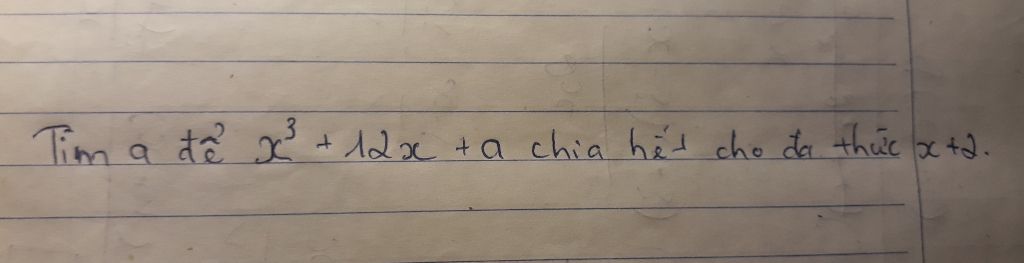 Tìm a để x³ + 12x + a chia hết cho đa thức x+2.